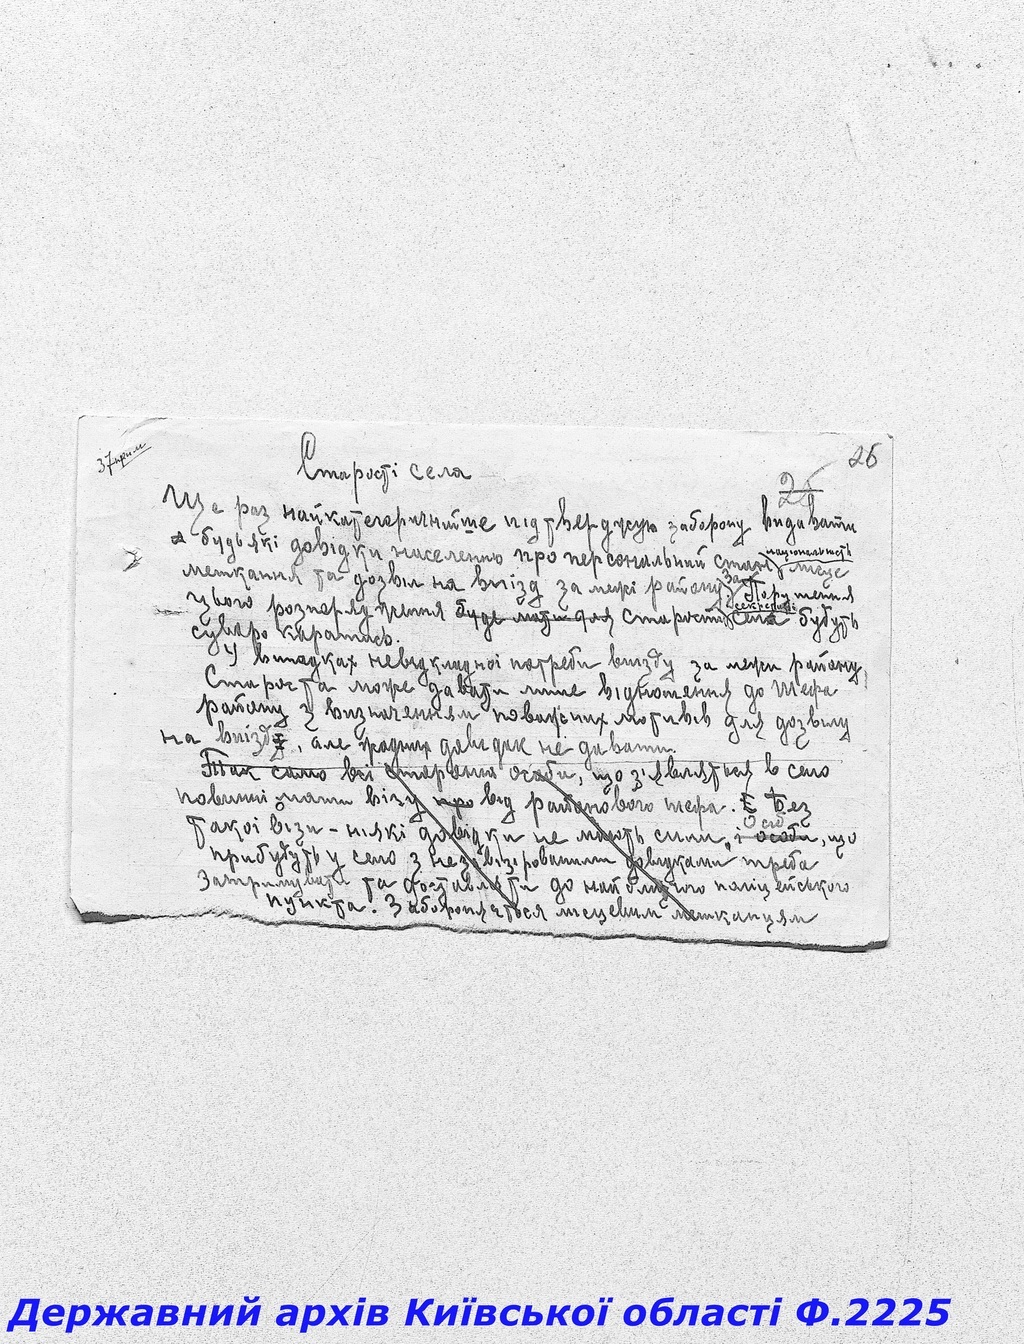 37 прим
26
25
Старості села
Ще раз найкатегоричніше підтверджую заборону видавати
будь які довідки населенню про персональний стан, національность
місце
мешкання та дозвіл на виїзд за межі району. За Порушення
цього розпорядження буде мати для старости, секретарі села будуть
суворо каратись.
У випадках невідкладної потреби виїзду за межи району,
Староста може давати лише відношення до Шефа
району з визначенням поважних мотивів для дозволу
на виїзд, але жодних довідок не давати.
Так само всі сторонні особи, що з'являться в село
повинні мати візу про від районового шефа. Без
такої візи - ніякі довідки не мають сили, і особи Осіб, що
прибудуть у село з незавізированими довідками треба
Затримувати та доставляти до найближчого поліцейського
пункта. Забороняється місцевим мешканцям
Державний архів Київської області Ф.2225